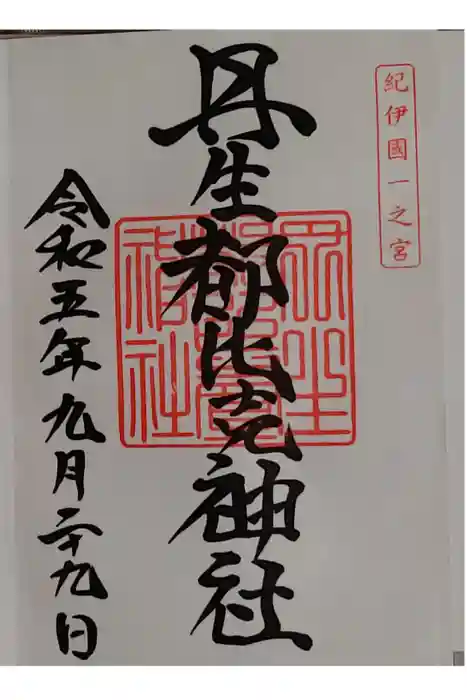 紀伊國一之宮
丹生都比売神社
丹生都比賣神社
令和五年九月二十九日